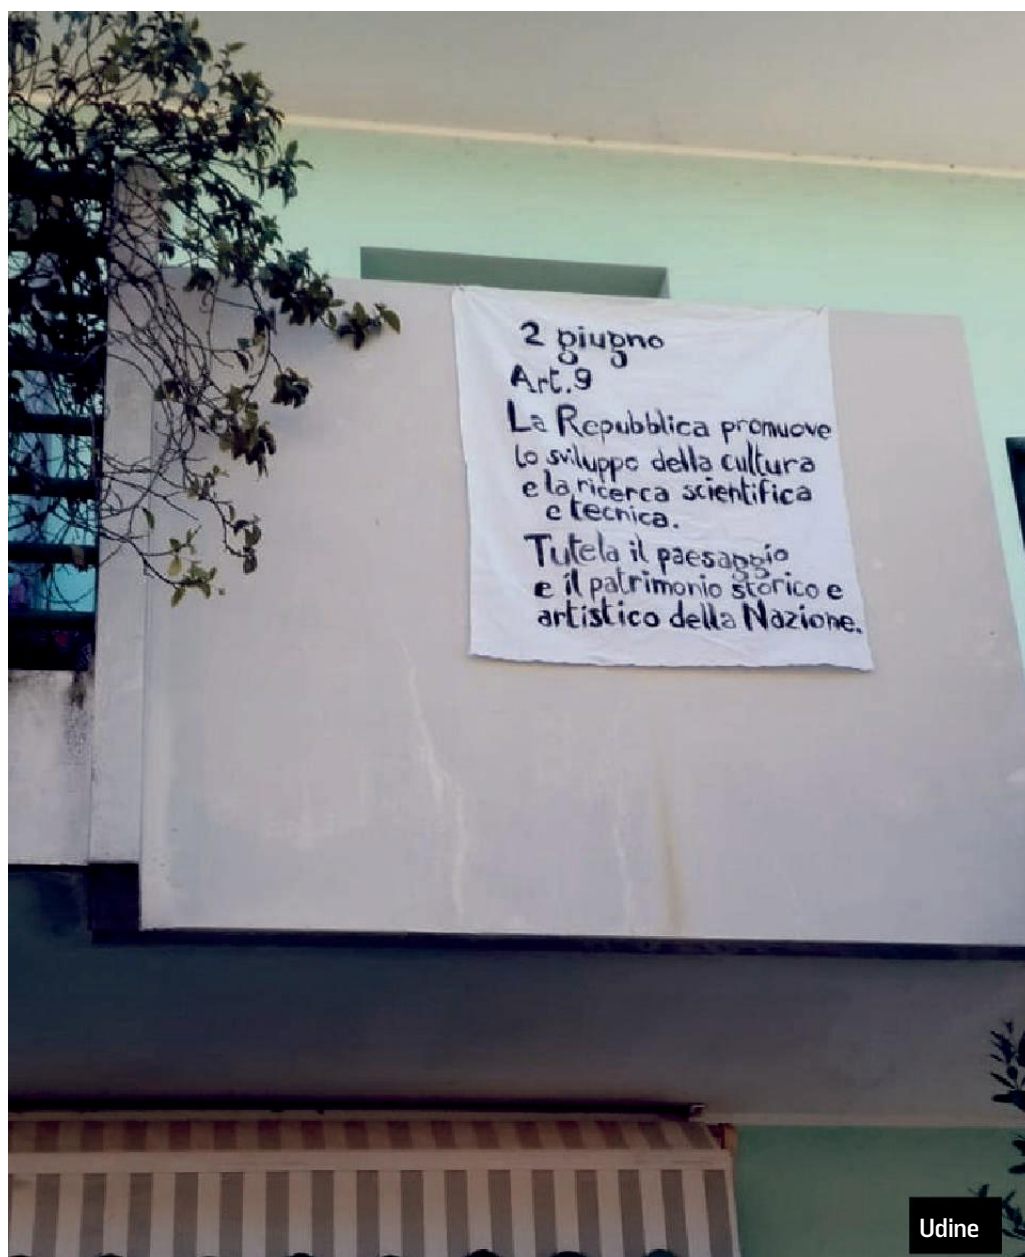 2 giugno
Art.9
La Repubblica promuove
lo sviluppo della cultura
e la ricerca scientifica
e tecnica.
Tutela il paesaggio
e il patrimonio storico e
artistico della Nazione.
Udine